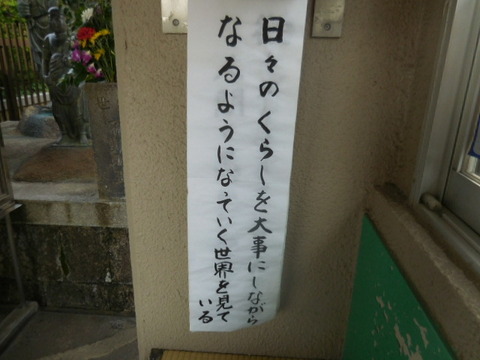 日々のくらしを大事にしながら
なるようになっていく世界を見て
いる